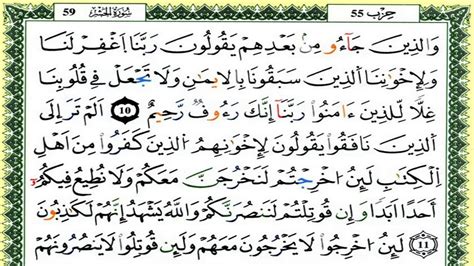 حزب 55
سورة الحشر
59
وَالذِينَ جَآءُو مِنۢ بَعْدِهِمْ يَقُولُونَ رَبَّنَا اَغْفِرْ لَنَا
وَلِإِخْوَٰنِنَا اَلذِينَ سَبَقُونَا بِالِايمَٰنِ وَلَا تَجْعَلْ فِے قُلُوبِنَا
غِلّاٗ لِّلذِينَ ءَامَنُواْ رَبَّنَآ إِنَّكَ رَءُوفٞ رَّحِيمٌ 10 اَلَمْ تَرَ إِلَى
اَلذِينَ نَافَقُواْ يَقُولُونَ لِإِخْوَٰنِهِمُ اُلذِينَ كَفَرُواْ مِنَ اَهْلِ
اِلْكِتَٰبِ لَئِنُ اخْرِجْتُمْ لَنَخْرُجَنَّ مَعَكُمْ وَلَا نُطِيعُ فِيكُمُۥٓ
أَحَداً اَبَداٗ وَإِن قُوتِلْتُمْ لَنَنصُرَنَّكُمْ وَاللَّهُ يَشْهَدُ إِنَّهُمْ لَكَٰذِبُونَ
11 لَئِنُ اخْرِجُواْ لَا يَخْرُجُونَ مَعَهُمْ وَلَئِن قُوتِلُواْ لَا يَنصُرُونَهُمْ